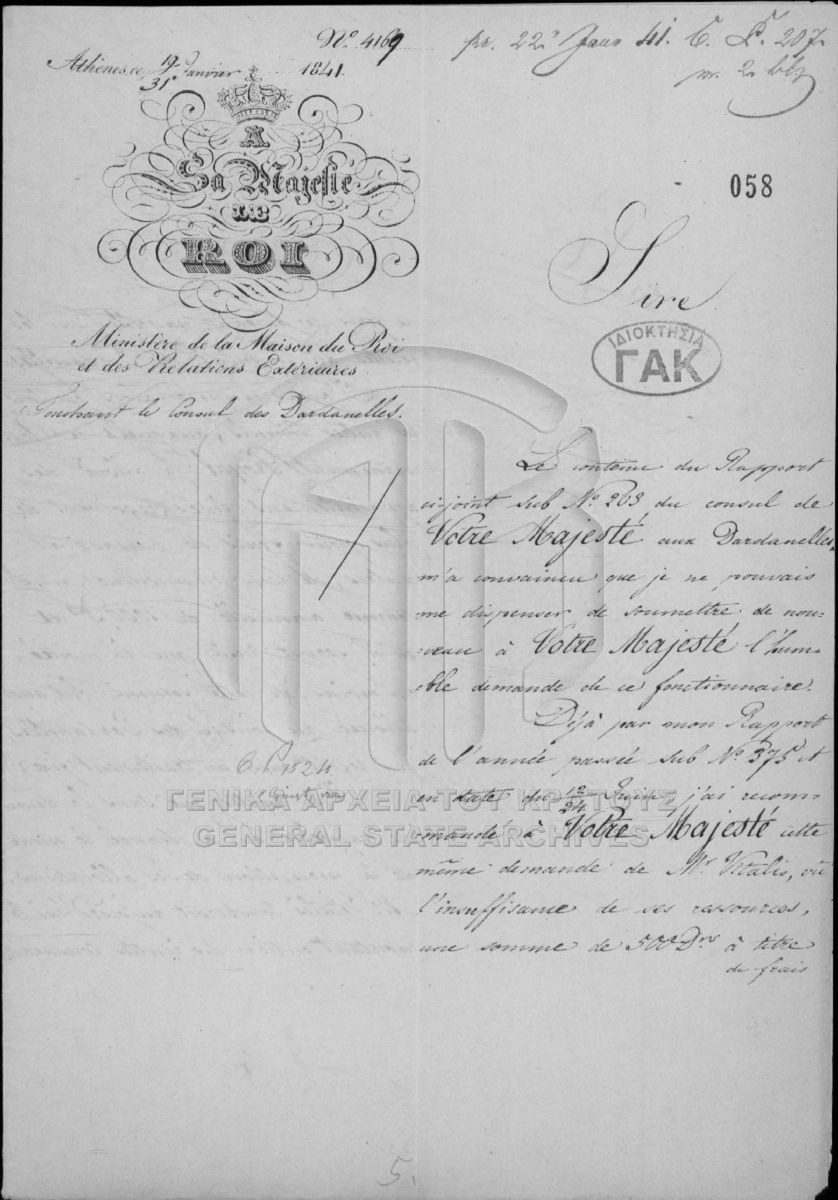 Nº 4169
pr. 22 Janv 41. C. P. 207.
Athènes, ce 19/31 Janvier 1841.
A
Sa Majesté
LE
ROI
058
Sire
ΙΔΙΟΚΤΗΣΙΑ
ΓΑΚ
Ministère de la Maison du Roi
et des Relations Extérieures
Touchant le Consul des Dardanelles.
Le contenu du Rapport
ci-joint sub Nº 203 du consul de
Votre Majesté aux Dardanelles,
m'a convaincu que je ne pouvais
me dispenser de soumettre de nou-
veau à Votre Majesté l'hum-
ble demande de ce fonctionnaire.
Déjà par mon Rapport
de l'année passée sub Nº 375 et
en date du 12/24 Juin, j'ai recom-
mandé à Votre Majesté cette
même demande de Mr Vitalis, vu
l'insuffisance de ses ressources,
une somme de 500 Drs à titre
de frais
1824
ΓΕΝΙΚΑ ΑΡΧΕΙΑ ΤΟΥ ΚΡΑΤΟΥΣ
GENERAL STATE ARCHIVES
5.